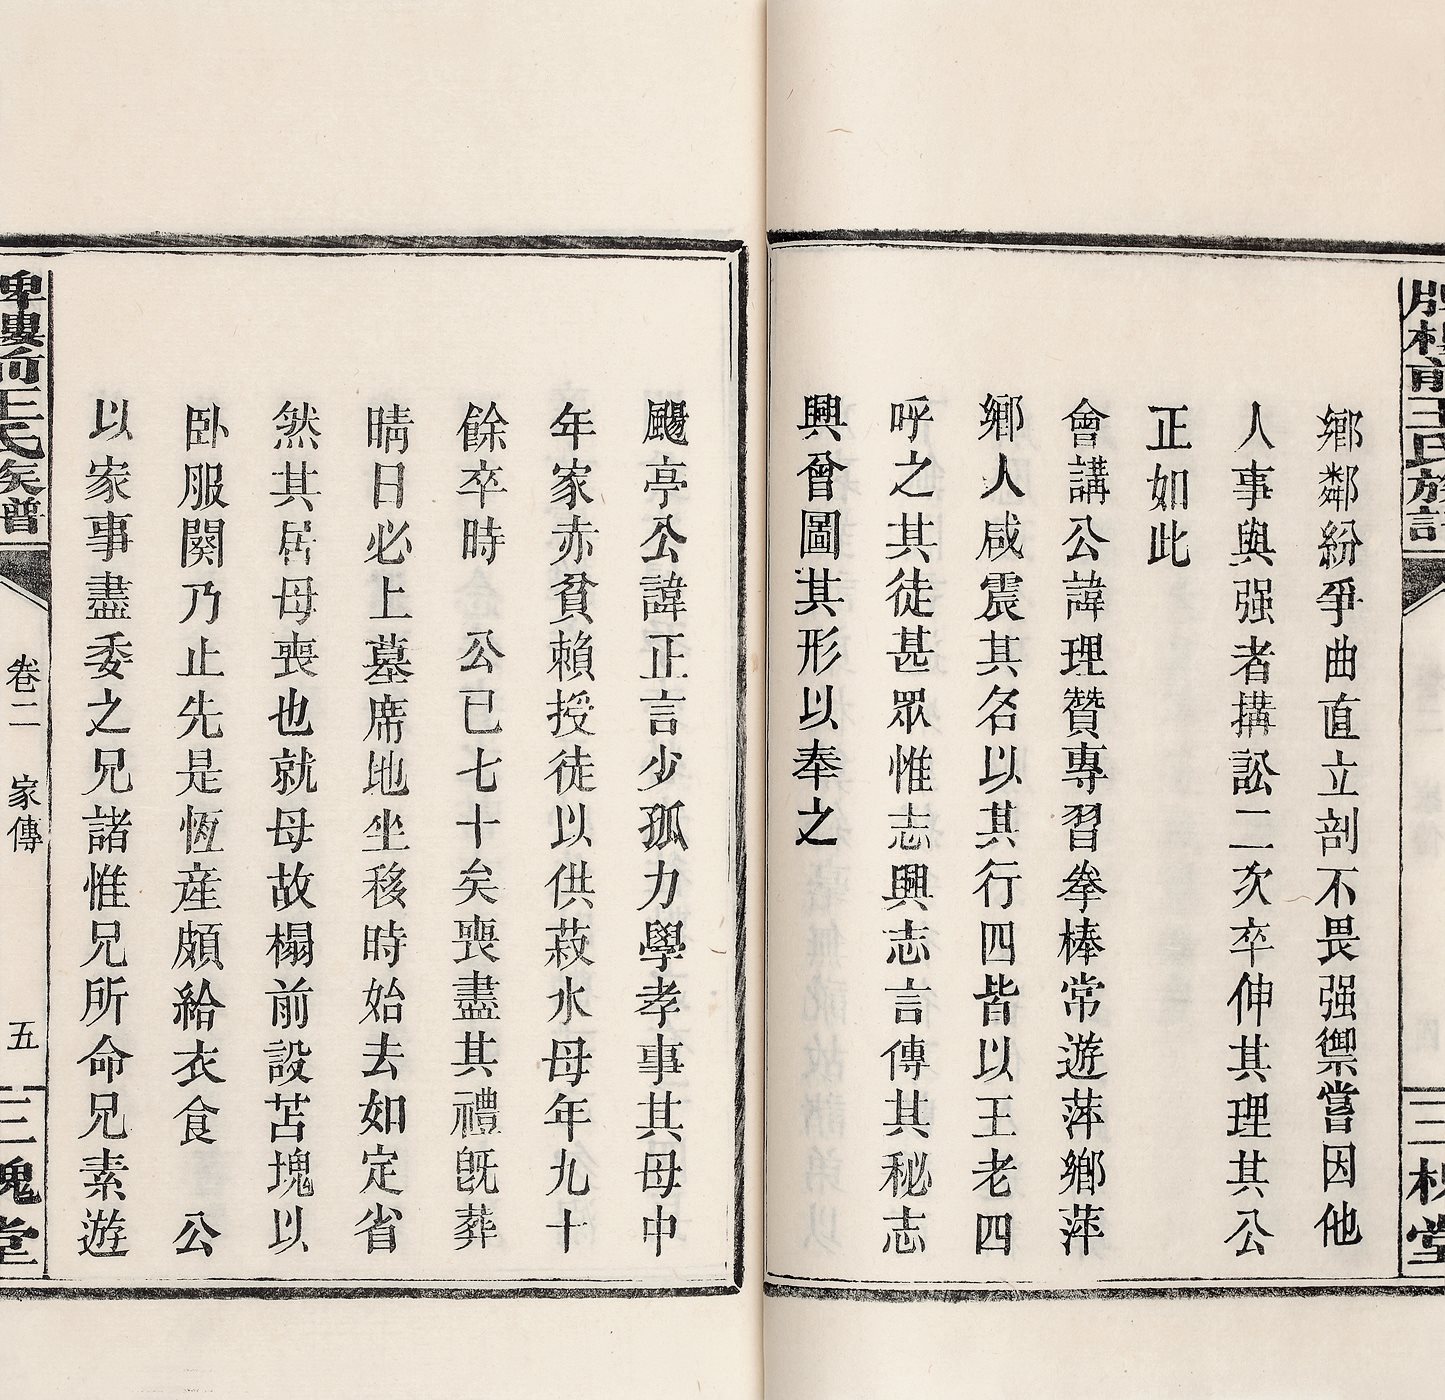 牌樓前王氏族譜
三槐堂
鄉鄰紛爭曲直立剖不畏强禦嘗因他
人事與强者搆訟二次卒伸其理其公
正如此
會講公諱理贊專習拳棒常遊萍鄉萍
鄉人咸震其名以其行四皆以王老四
呼之其徒甚眾惟志興志言傳其秘志
興曾圖其形以奉之
颺亭公諱正言少孤力學孝事其母中
年家赤貧賴授徒以供菽水母年九十
餘卒時 公已七十矣喪盡其禮旣葬
晴日必上墓席地坐移時始去如定省
然其居母喪也就母故榻前設苫塊以
卧服闋乃止先是恆產頗給衣食 公
以家事盡委之兄諸惟兄所命兄素遊
牌樓前王氏族譜
卷二 家傳
五
三槐堂